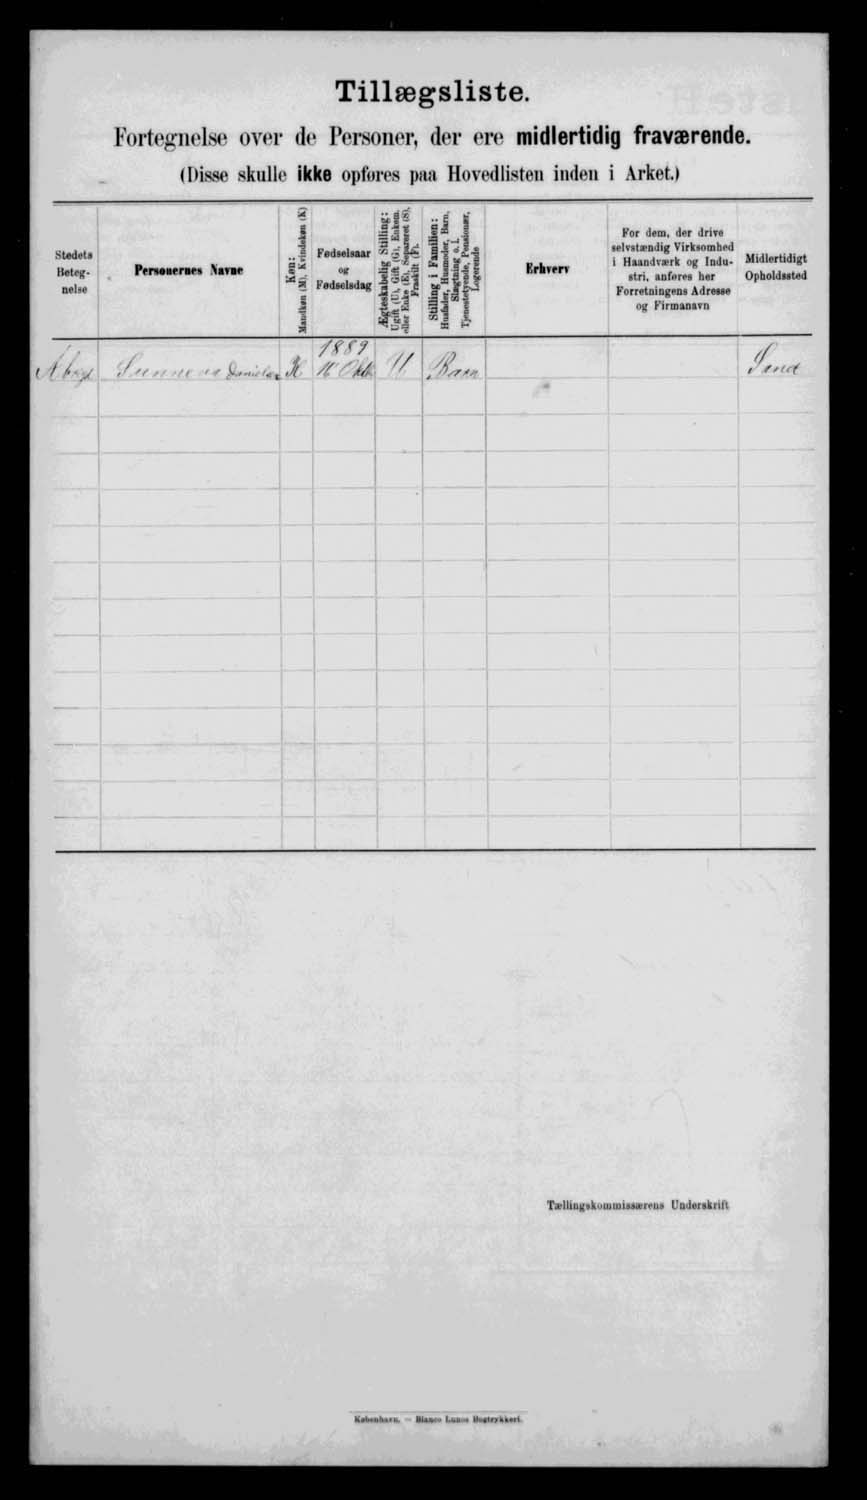 Tillægsliste.
Fortegnelse over de Personer, der ere midlertidig fraværende.
(Disse skulle ikke opføres paa Hovedlisten inden i Arket.)
Stedets
Beteg-
nelse
Personernes Navne
Køn:
Mandkøn (M), Kvindekøn (K)
Fødselsaar
og
Fødselsdag
Ægteskabelig Stilling:
Ugift (U), Gift (G), Enkem.
eller Enke (E), Separeret (S),
Fraskilt (F).
Stilling i Familien:
Husfader, Husmoder, Barn,
Slægtning o. l.
Tjenestetyende, Pensionær,
Logerende
Erhverv
For dem, der drive
selvstændig Virksomhed
i Haandværk og Indu-
stri, anføres her
Forretningens Adresse
og Firmanavn
Midlertidigt
Opholdssted
1889
Sunneva K Okt U Barn Sand
Tællingskommissærens Underskrift
København. — Bianco Lunos Bogtrykkeri.